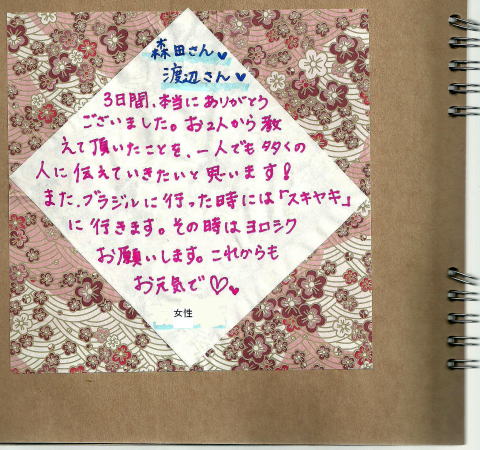 森田さん♥
渡辺さん♥
3日間、本当にありがとう
ございました。お2人から教
えて頂いたことを、一人でも多くの
人に伝えていきたいと思います!
また、ブラジルに行った時には「スキヤキ」
に行きます。その時はヨロシク
お願いします。これからも
お元気で♡♥
女性